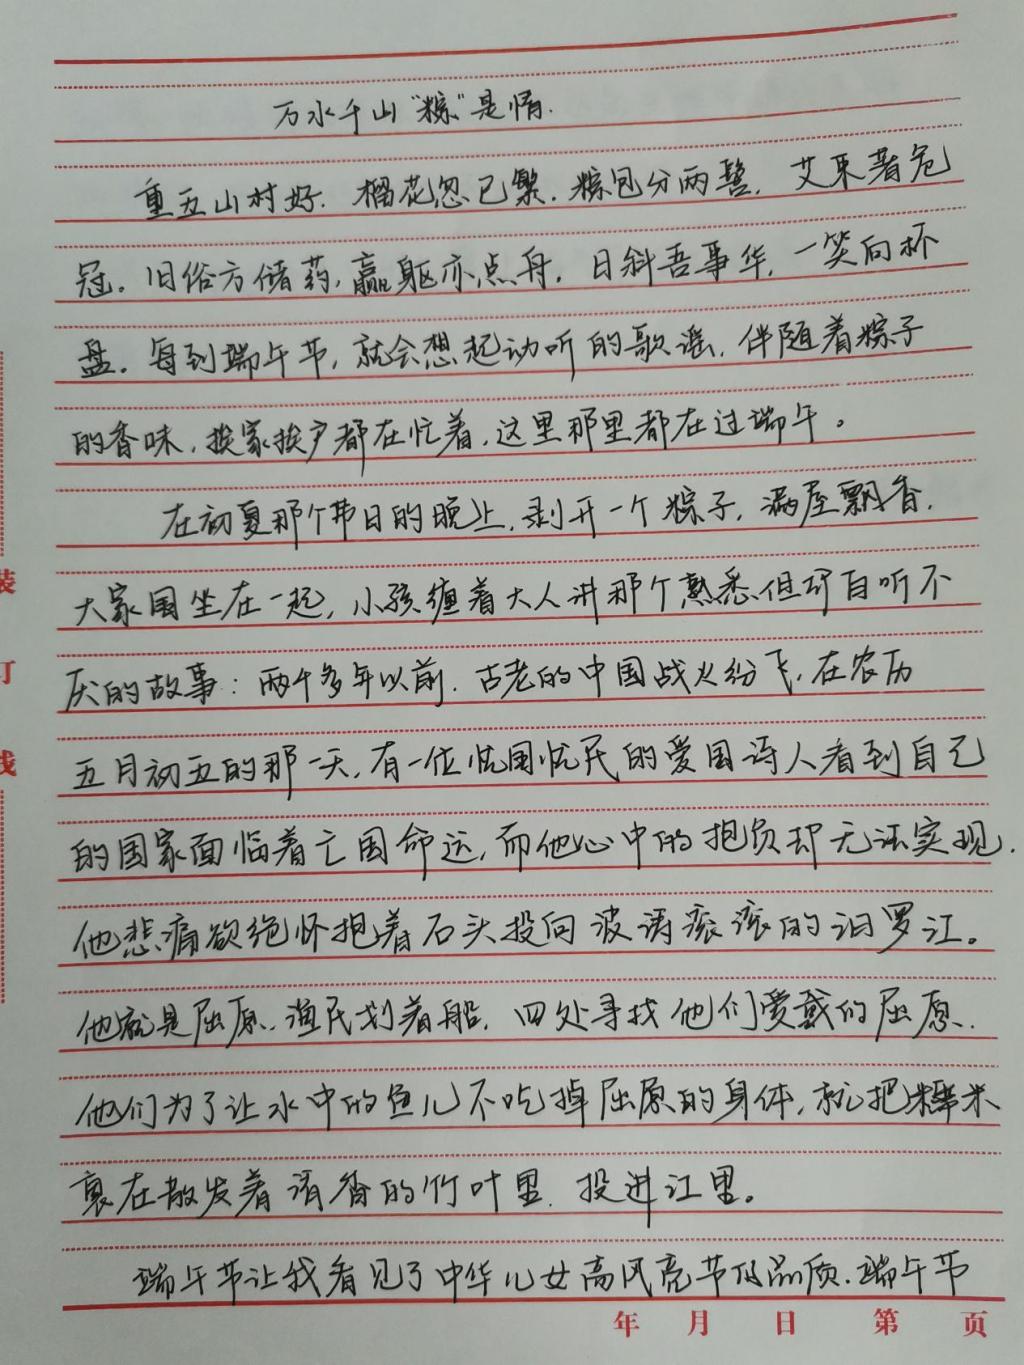 万水千山“粽”是情.
重五山村好.榴花忽已繁.粽包分两髻.艾束著危
冠.旧俗方储药,羸躯亦点丹.日斜吾事毕,一笑向杯
盘.每到端午节,就会想起动听的歌谣.伴随着粽子
的香味,挨家挨户都在忙着,这里那里都在过端午。
在初夏那个节日的晚上,剥开一个粽子,满屋飘香,
大家围坐在一起,小孩缠着大人讲那个熟悉但却百听不
厌的故事:两千多年以前.古老的中国战火纷飞,在农历
五月初五的那一天,有一位忧国忧民的爱国诗人看到自己
的国家面临着亡国命运,而他心中的抱负却无法实现.
他悲痛欲绝怀抱着石头投向波涛滚滚的汨罗江。
他就是屈原.渔民划着船,四处寻找他们爱戴的屈原.
他们为了让水中的鱼儿不吃掉屈原的身体,就把糯米
裹在散发着清香的竹叶里.投进江里。
端午节让我看见了中华儿女高风亮节的品质.端午节
装
订
线
年 月 日 第 页